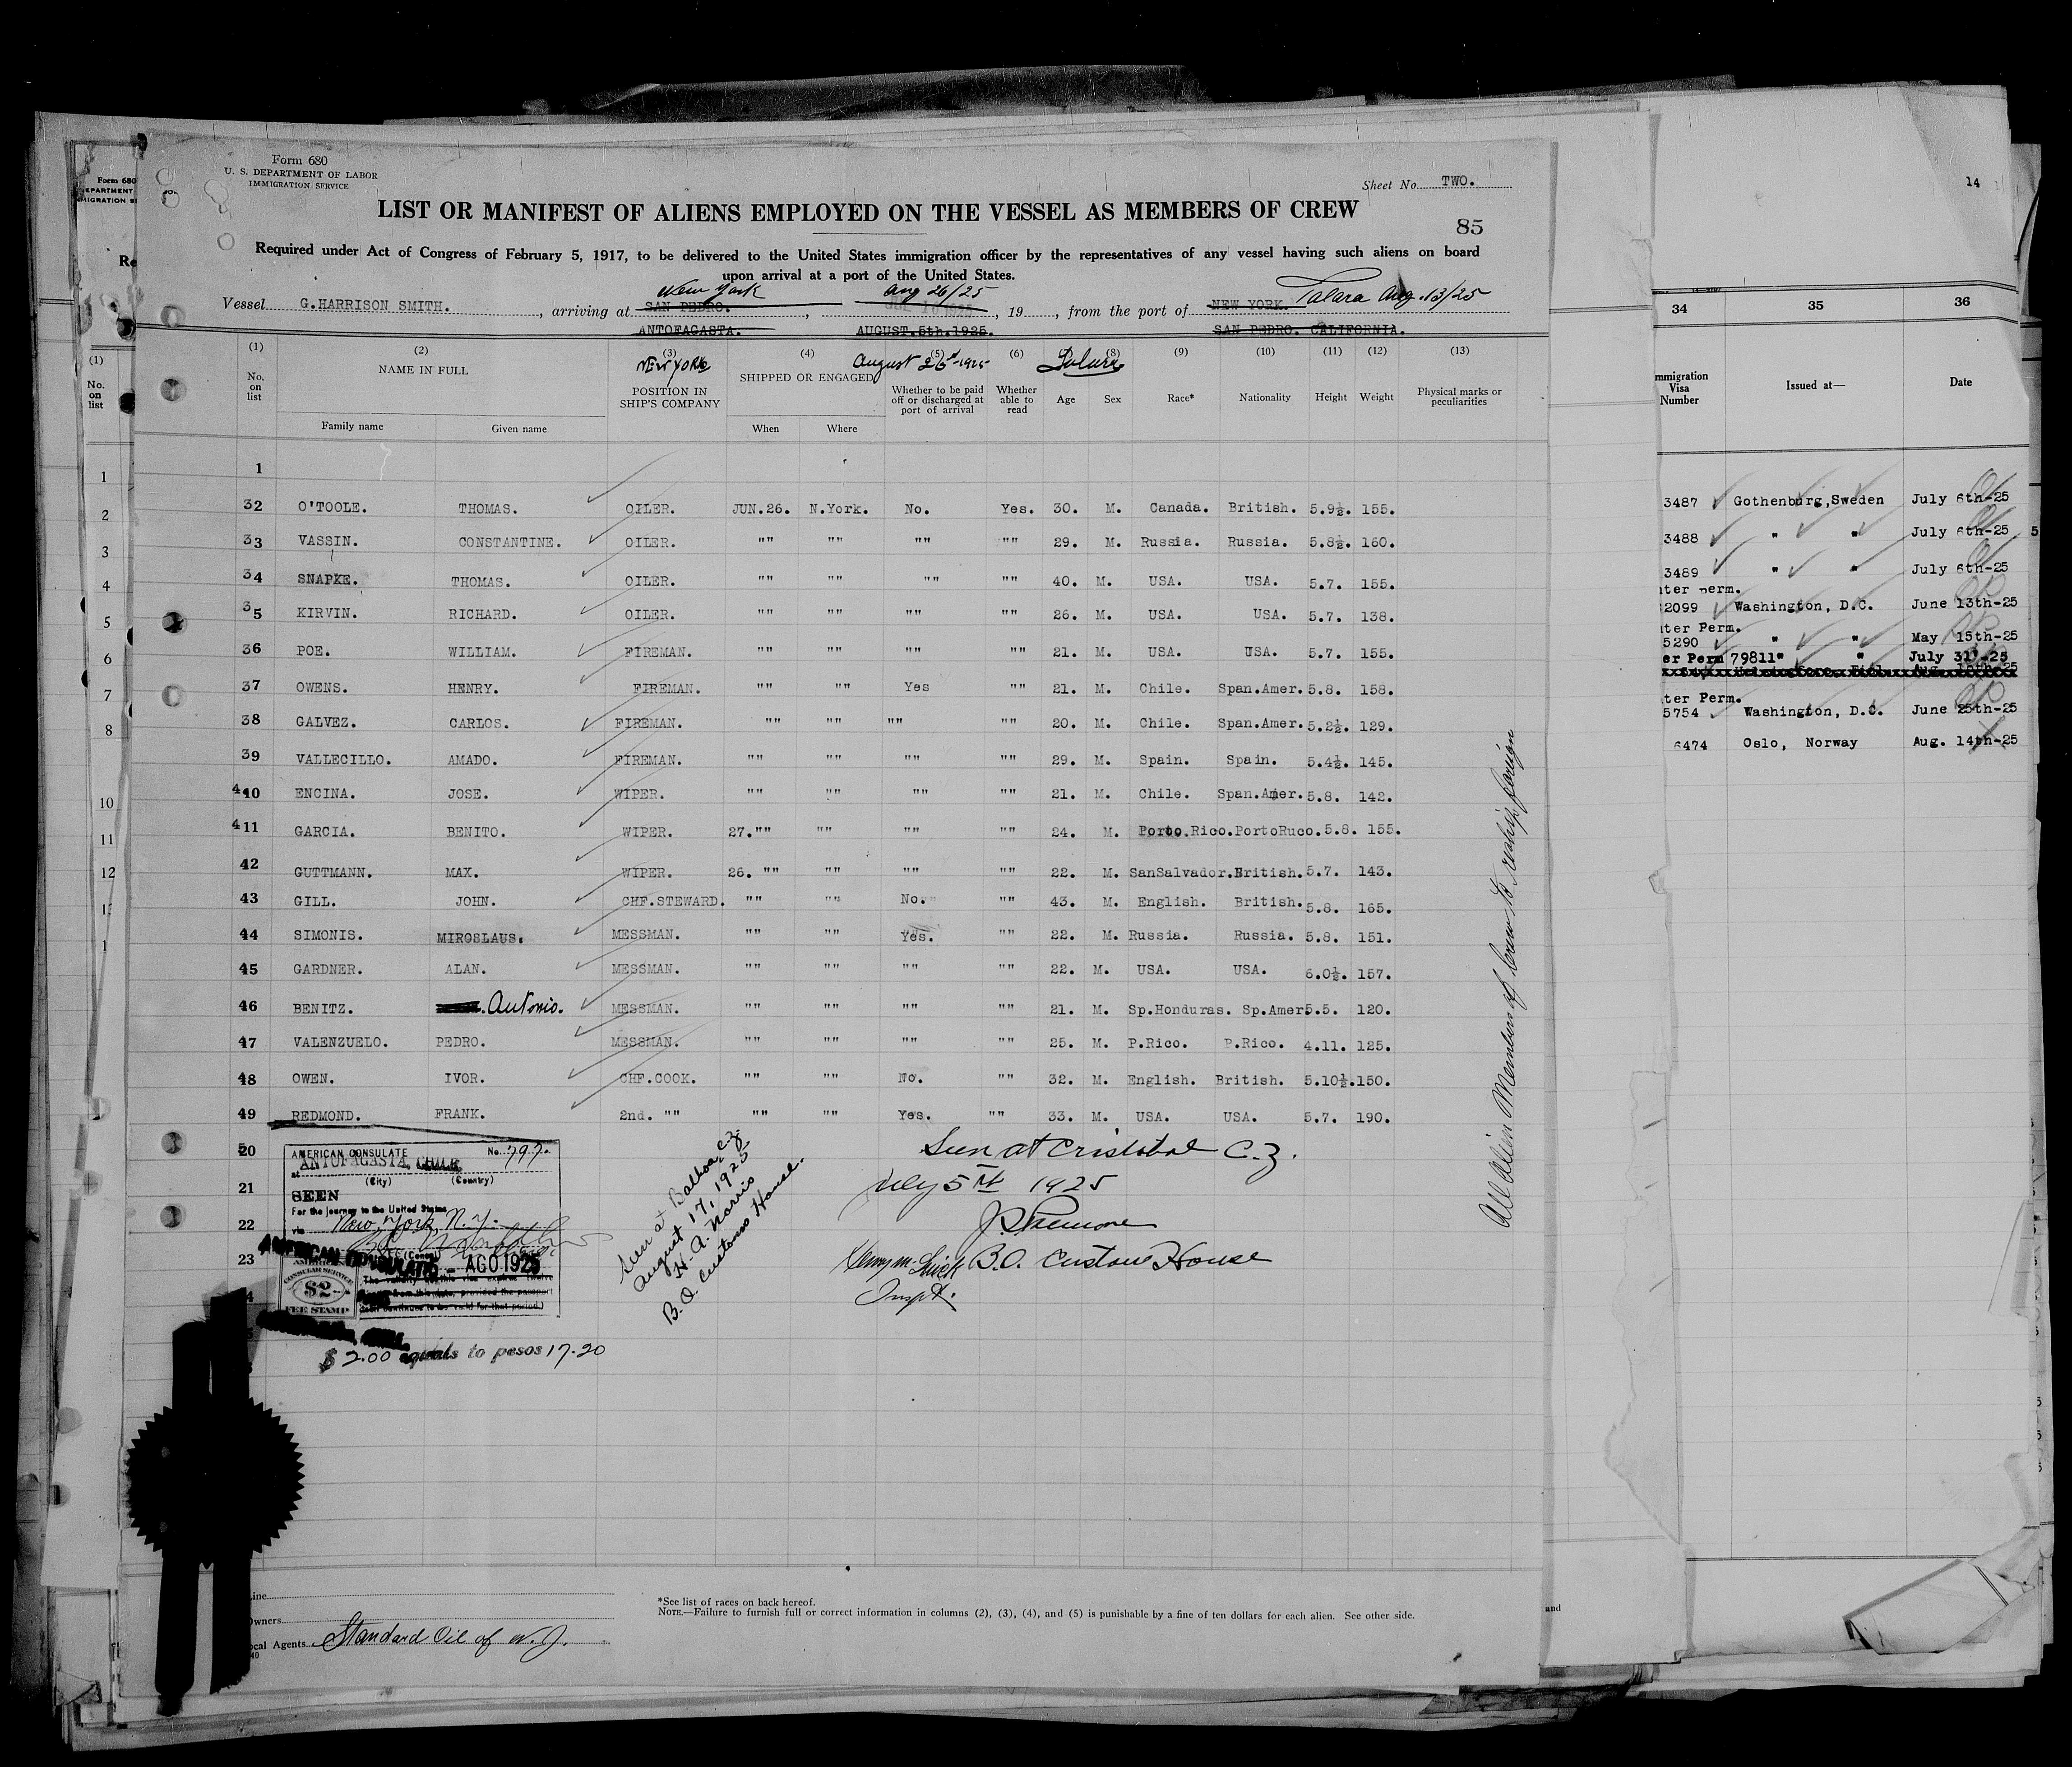 Form 680
U. S. DEPARTMENT OF LABOR
IMMIGRATION SERVICE
Sheet No. TWO.
LIST OR MANIFEST OF ALIENS EMPLOYED ON THE VESSEL AS MEMBERS OF CREW
85
Required under Act of Congress of February 5, 1917, to be delivered to the United States immigration officer by the representatives of any vessel having such aliens on board
upon arrival at a port of the United States.
New York Aug 26/25
Vessel G.HARRISON SMITH., arriving at SAN PEDRO., 19, from the port of NEW YORK. Talara Aug.13/25
ANTOFAGASTA. AUGUST.5th.1925. SAN PEDRO. CALIFORNIA.
(1) (2) (3) (4) (5) (6) (8) (9) (10) (11) (12) (13)
NEW YORK August 26th-1925
No. on list NAME IN FULL POSITION IN SHIP'S COMPANY SHIPPED OR ENGAGED Whether to be paid off or discharged at port of arrival Whether able to read Age Sex Race* Nationality Height Weight Physical marks or peculiarities
Family name Given name When Where
1
32 O'TOOLE. THOMAS. OILER. JUN.26. N.York. No. Yes. 30. M. Canada. British. 5.9½. 155.
33 VASSIN. CONSTANTINE. OILER. "" "" "" "" 29. M. Russia. Russia. 5.8½. 160.
34 SNAPKE. THOMAS. OILER. "" "" "" "" 40. M. USA. USA. 5.7. 155.
35 KIRVIN. RICHARD. OILER. "" "" "" "" 26. M. USA. USA. 5.7. 138.
36 POE. WILLIAM. FIREMAN. "" "" "" "" 21. M. USA. USA. 5.7. 155.
37 OWENS. HENRY. FIREMAN. "" "" Yes "" 21. M. Chile. Span.Amer. 5.8. 158.
38 GALVEZ. CARLOS. FIREMAN. "" "" "" "" 20. M. Chile. Span.Amer. 5.2½. 129.
39 VALLECILLO. AMADO. FIREMAN. "" "" "" "" 29. M. Spain. Spain. 5.4½. 145.
410 ENCINA. JOSE. WIPER. "" "" "" "" 21. M. Chile. Span.Amer. 5.8. 142.
411 GARCIA. BENITO. WIPER. 27."" "" "" "" 24. M. Porto.Rico. PortoRuco. 5.8. 155.
42 GUTTMANN. MAX. WIPER. 26. "" "" "" "" 22. M. SanSalvador. British. 5.7. 143.
43 GILL. JOHN. CHF.STEWARD. "" "" No. "" 43. M. English. British. 5.8. 165.
44 SIMONIS. MIROSLAUS. MESSMAN. "" "" Yes. "" 22. M. Russia. Russia. 5.8. 151.
45 GARDNER. ALAN. MESSMAN. "" "" "" "" 22. M. USA. USA. 6.0½. 157.
46 BENITZ. Antonio. MESSMAN. "" "" "" "" 21. M. Sp.Honduras. Sp.Amer 5.5. 120.
47 VALENZUELO. PEDRO. MESSMAN. "" "" "" "" 25. M. P.Rico. P.Rico. 4.11. 125.
48 OWEN. IVOR. CHF.COOK. "" "" No. "" 32. M. English. British. 5.10½. 150.
49 REDMOND. FRANK. 2nd. "" "" "" Yes. "" 33. M. USA. USA. 5.7. 190.
20
21
22
23
AMERICAN CONSULATE No. 797.
at ANTOFAGASTA, CHILE
(City) (Country)
SEEN
For the journey to the United States
via New York N.Y.
AGO 1925
CONSULAR SERVICE
$2
FEE STAMP
$2.00 equals to pesos 17.20
Seen at Balboa, C.Z.
August 17, 1925
H. A. Norris
B.O. Customs House.
Seen at Cristobal C.Z.
July 5th 1925
B.O. Customs House
Inspt.
All Alien Members of Crew to reship foreign
Line
Owners
Local Agents Standard Oil of N.J.
*See list of races on back hereof.
NOTE.—Failure to furnish full or correct information in columns (2), (3), (4), and (5) is punishable by a fine of ten dollars for each alien. See other side.
Form 680
(1)
No. on list
1
2
3
4
5
6
7
8
10
11
12
14
34 35 36
Immigration Visa Number Issued at— Date
3487 Gothenburg,Sweden July 6th-25
3488 " " July 6th-25
3489 " " July 6th-25
2099 Washington, D.C. June 13th-25
5290 " " May 15th-25
79811 " " July 31-25
5754 Washington, D.C. June 25th-25
6474 Oslo, Norway Aug. 14th-25
and